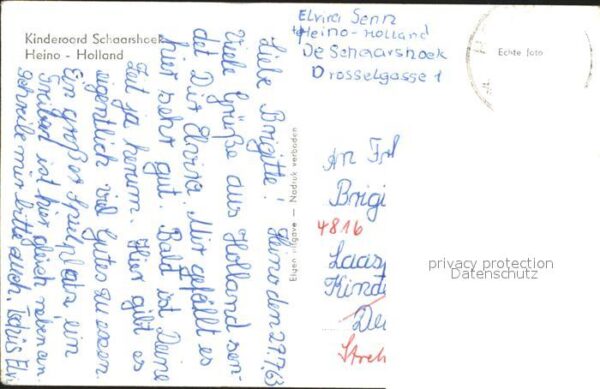 Kinderoord Schaarshoek
Heino - Holland
Elvira Senn
Heino-Holland
De Schaarshoek
Drosselgasse 1
Echte foto
Heino den 27.7.63
Liebe Brigitte!
Viele Grüße aus Holland sen-
det Dir Elvira. Mir gefällt es
hier sehr gut. Bald ist Deine
Zeit ja herum. Hier gibt es
eigentlich viel Gutes zu essen.
Ein großer Spielplatz, ein
ist hier gleich nebenan.
Schreibe mir bitte auch. Elvi
Eigen uitgave — Nadruk verboden
An Frl
Brigi
4816
Laasp
Kinde
De
Streh
privacy protection
Datenschutz